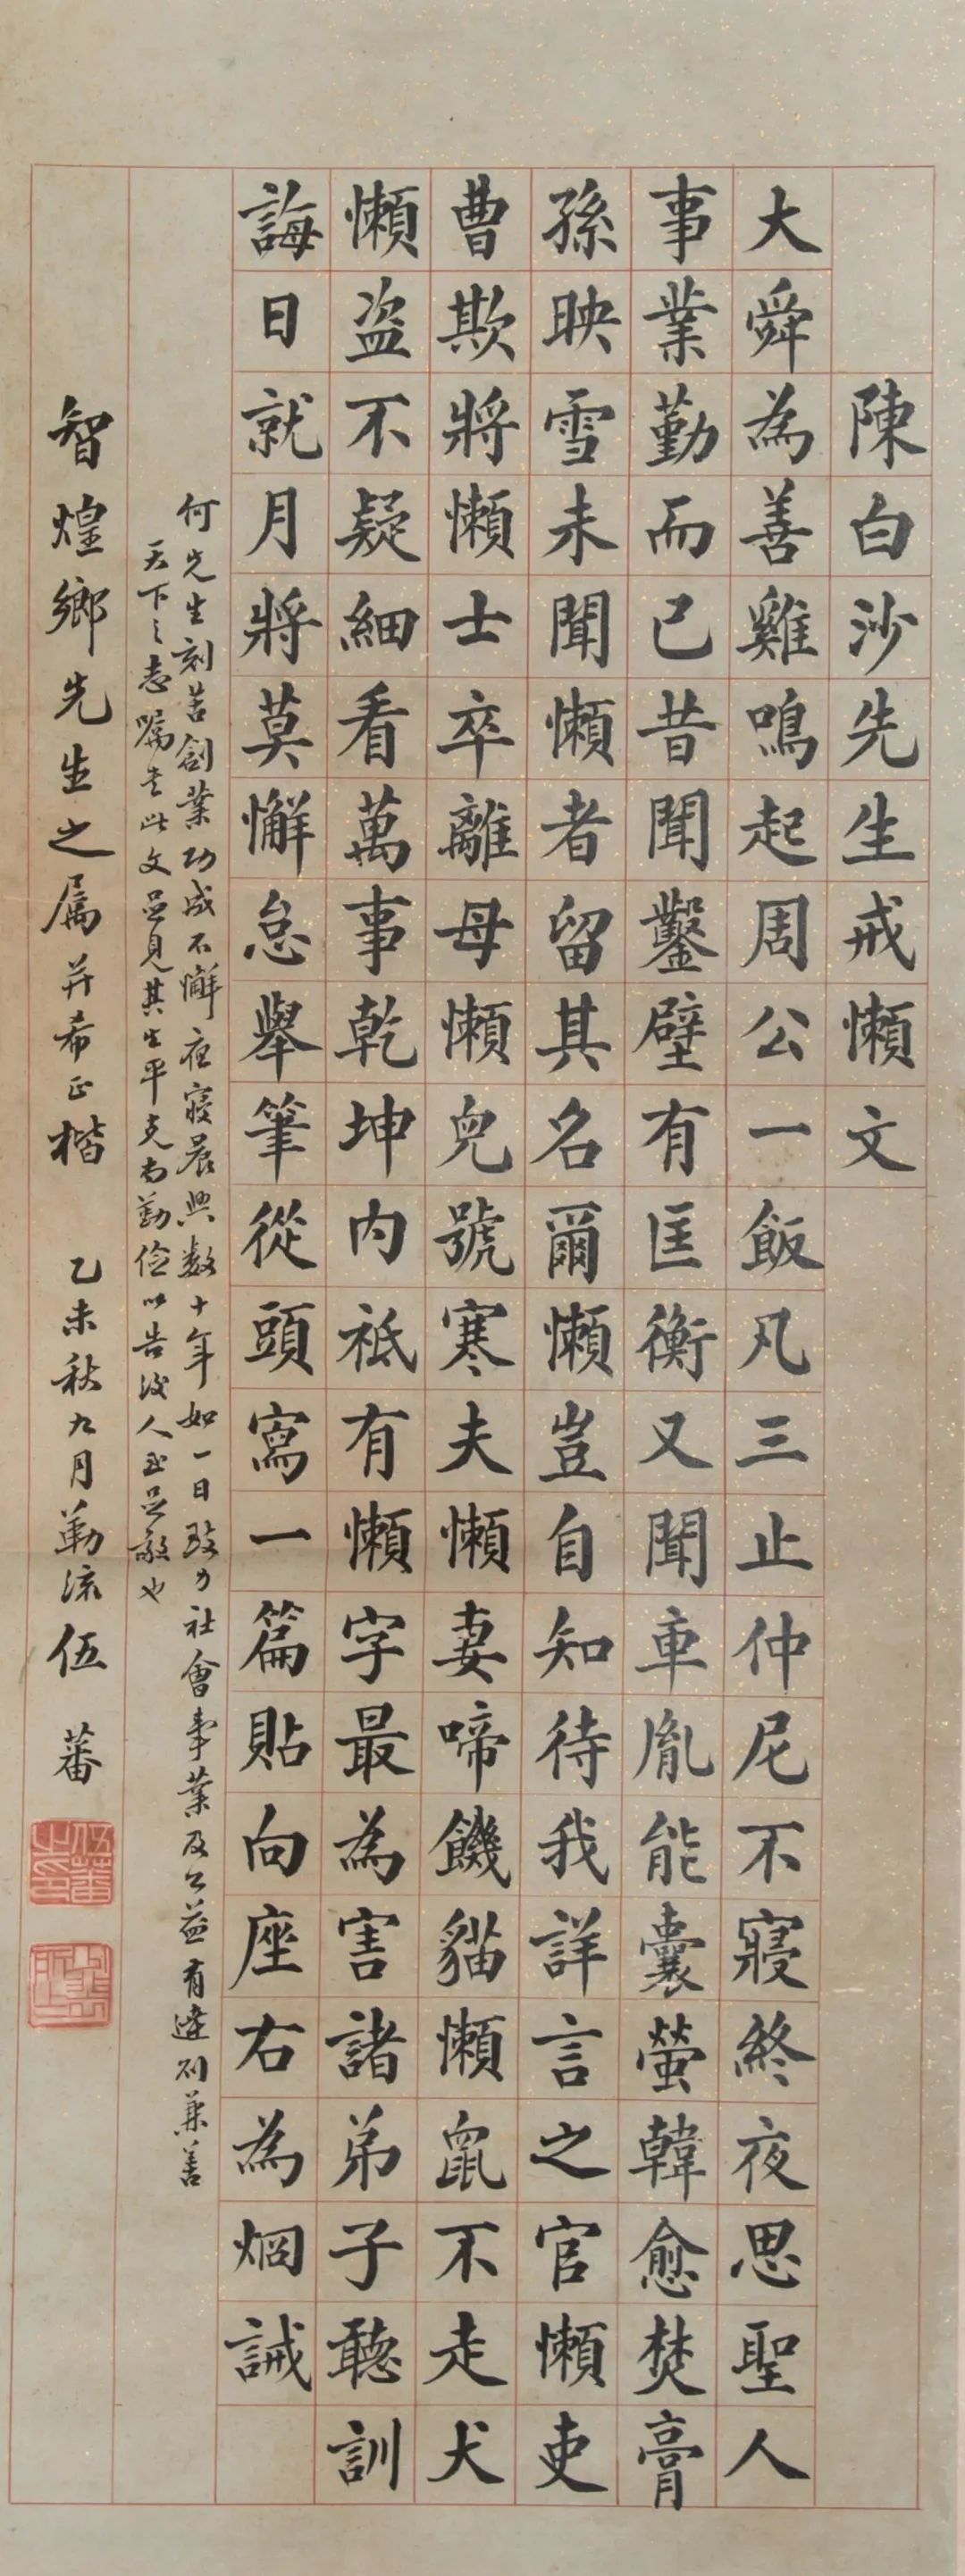 陳白沙先生戒懶文
大舜為善雞鳴起周公一飯凡三止仲尼不寢終夜思聖人
事業勤而已昔聞鑿壁有匡衡又聞車胤能囊螢韓愈焚膏
孫映雪未聞懶者留其名爾懶豈自知待我詳言之官懶吏
曹欺將懶士卒離母懶兒號寒夫懶妻啼饑貓懶鼠不走犬
懶盜不疑細看萬事乾坤內祗有懶字最為害諸弟子聽訓
誨日就月將莫懈怠舉筆從頭寫一篇貼向座右為烱誡
何先生刻苦創業功成不懈夜寢晨興数十年如一日致力社會事業及公益有達則兼善
天下之志囑書此文并見其生平克尚勤儉以告後人
智煌鄉先生之属并希正楷 乙未秋九月勷流伍蕃
伍蕃之印